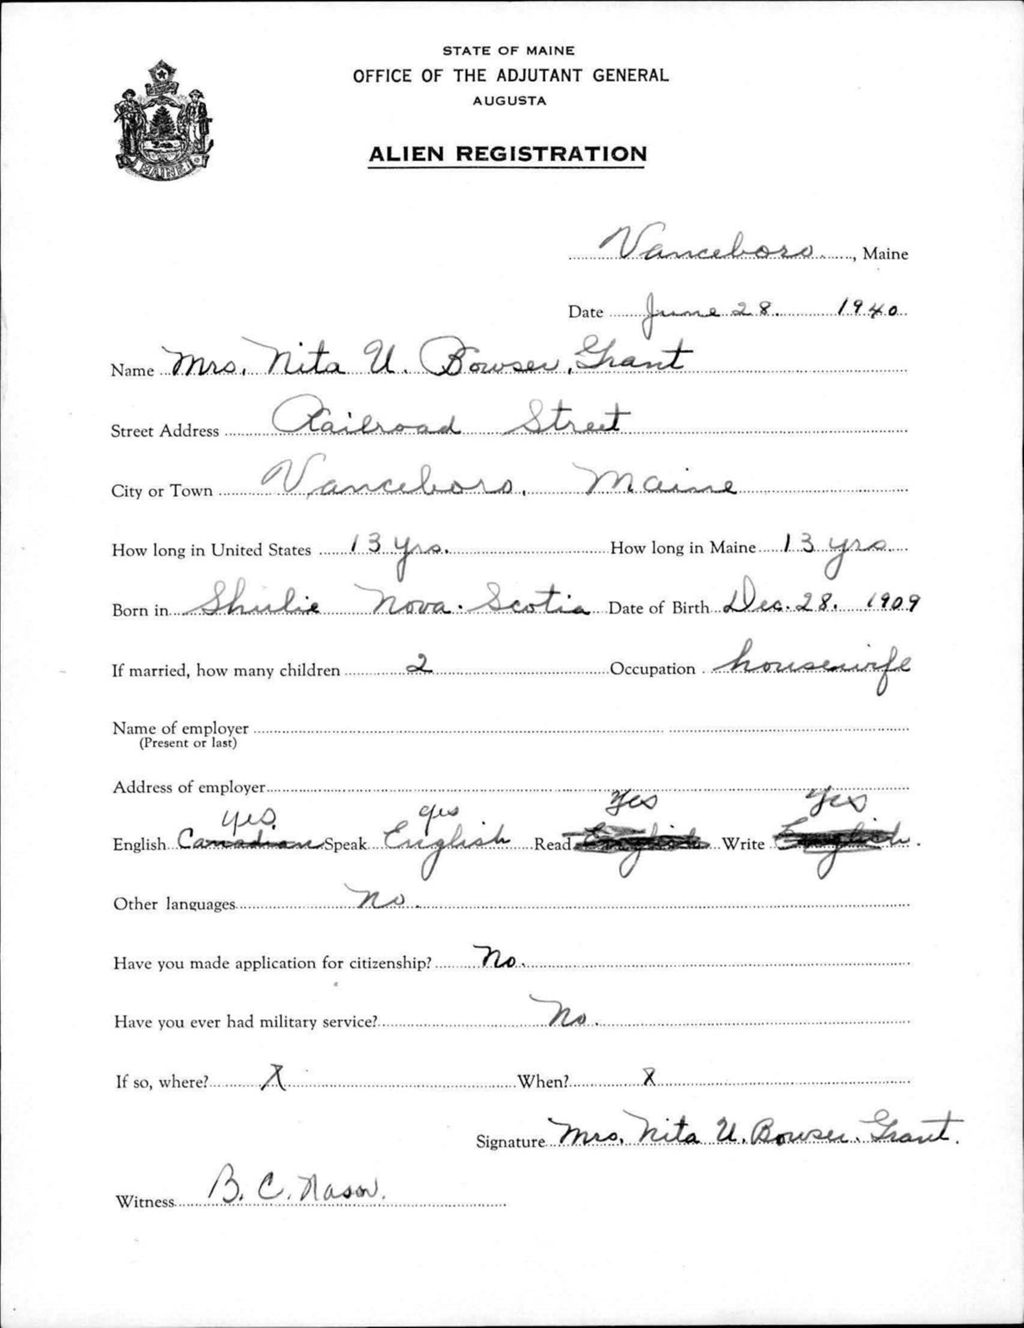 STATE OF MAINE
OFFICE OF THE ADJUTANT GENERAL
AUGUSTA
ALIEN REGISTRATION
MAINE
Vanceboro, Maine
Date June 28. 1940
Name Mrs. Nita U. Bowser, Grant
Street Address Railroad Street
City or Town Vanceboro, Maine
How long in United States 13 yrs. How long in Maine 13 yrs
Born in Shulie Nova. Scotia Date of Birth Dec. 28. 1909
If married, how many children 2 Occupation housewife
Name of employer
(Present or last)
Address of employer
yes. yes Yes Yes
English Canadian Speak English Read English Write English.
Other languages No.
Have you made application for citizenship? No.
Have you ever had military service? No.
If so, where? X When? X
Signature Mrs. Nita U. Bowser. Grant.
Witness B. C. Nason.